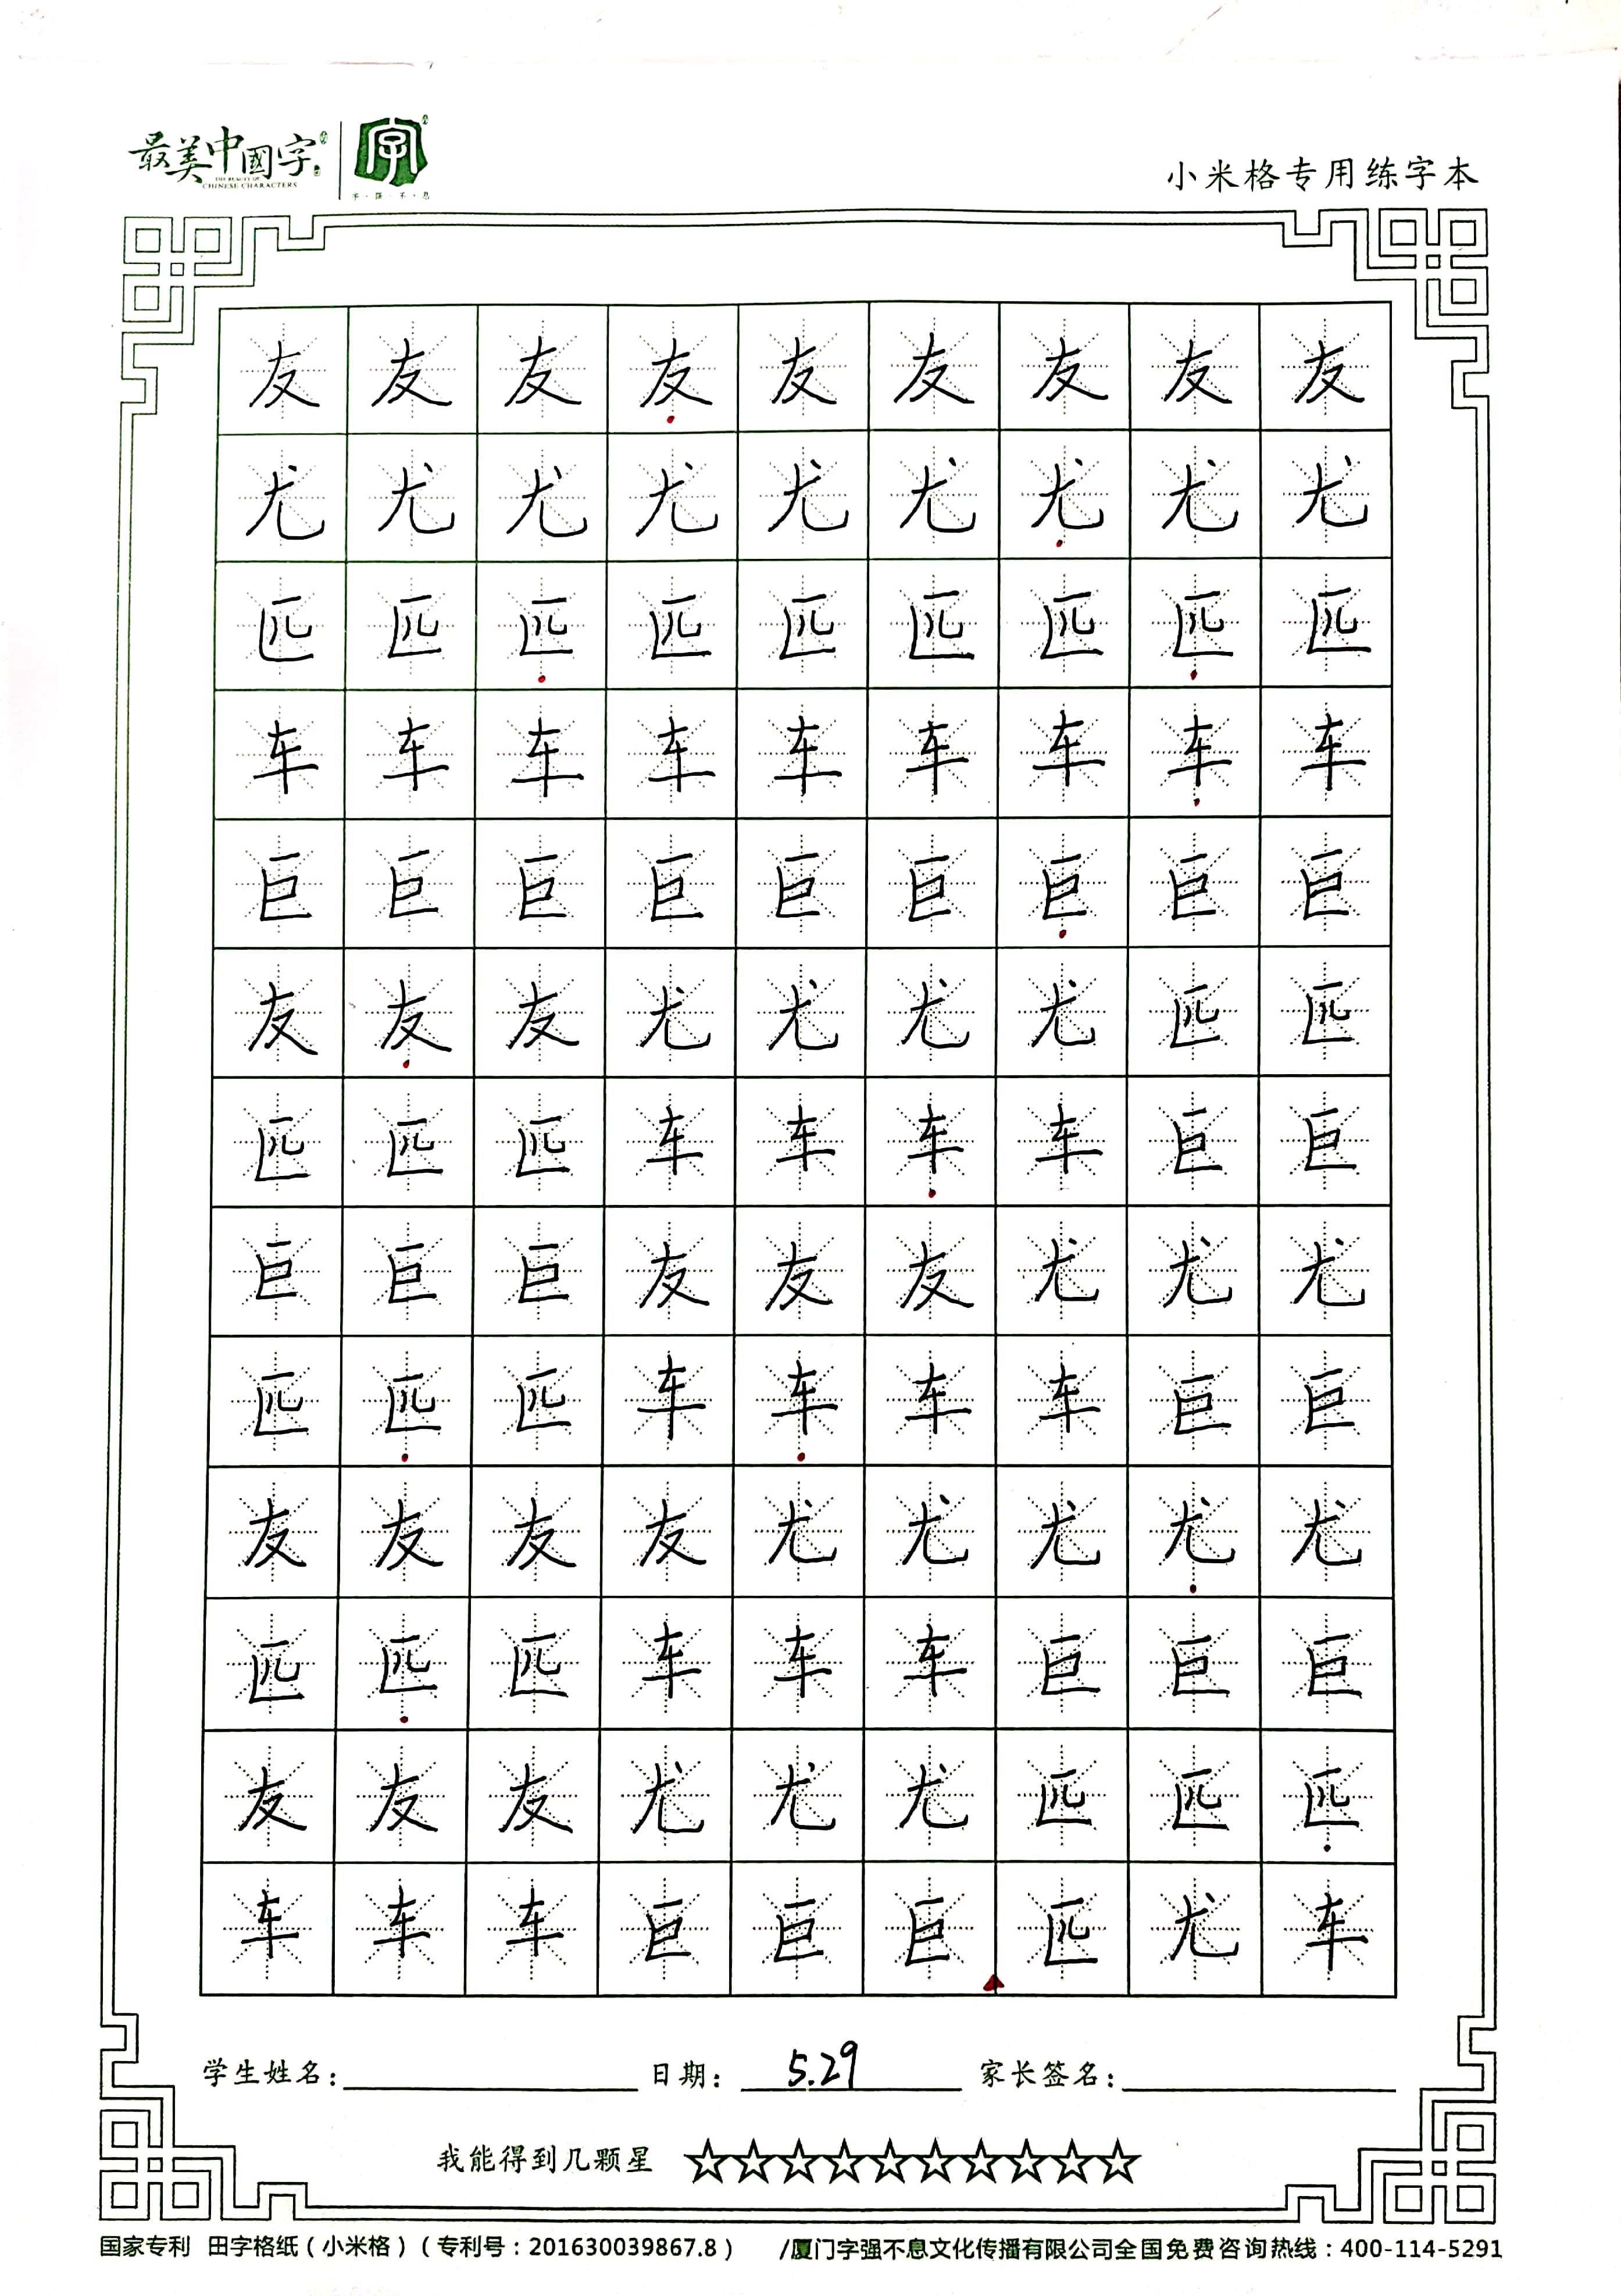 最美中國字
THE BEAUTY OF
CHINESE CHARACTERS
字
字·强·不·息
小米格专用练字本
友友友友友友友友友
尤尤尤尤尤尤尤尤尤
匹匹匹匹匹匹匹匹匹
车车车车车车车车车
巨巨巨巨巨巨巨巨巨
友友友尤尤尤尤匹匹
匹匹匹车车车车巨巨
巨巨巨友友友尤尤尤
匹匹匹车车车车巨巨
友友友友尤尤尤尤尤
匹匹匹车车车巨巨巨
友友友尤尤尤匹匹匹
车车车巨巨巨匹尤车
学生姓名： 日期： 5.29 家长签名：
我能得到几颗星 ☆☆☆☆☆☆☆☆☆☆
国家专利 田字格纸（小米格）（专利号：201630039867.8） /厦门字强不息文化传播有限公司全国免费咨询热线：400-114-5291